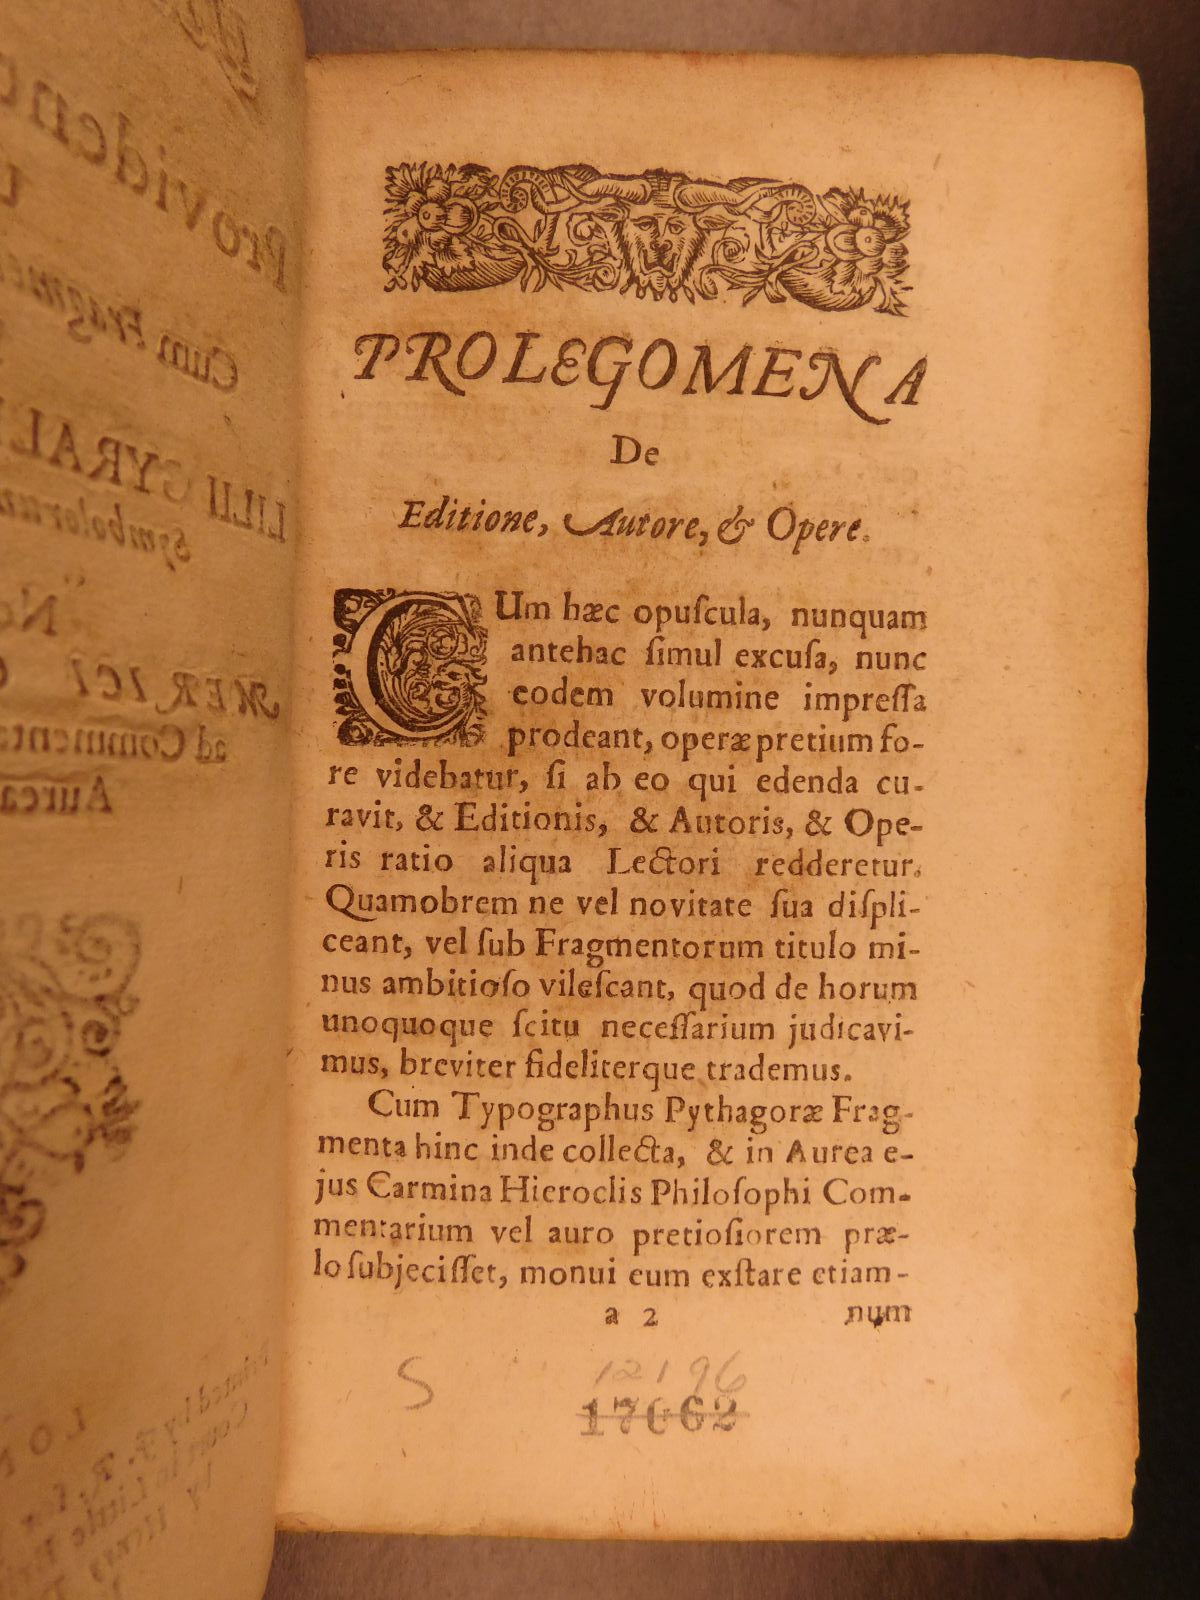 Providen
Cum Fragmen
LILII GYRAL
Symbolorum
No
MERICI
ad Commenta
Aurea
LON
Printed by F. R. for
Court in Little
by Henry
PROLEGOMENA
De
Editione, Autore, & Opere.
CUm hæc opuſcula, nunquam
antehac ſimul excuſa, nunc
eodem volumine impreſſa
prodeant, operæpretium fo-
re videbatur, ſi ab eo qui edenda cu-
ravit, & Editionis, & Autoris, & Ope-
ris ratio aliqua Lectori redderetur.
Quamobrem ne vel novitate ſua diſpli-
ceant, vel ſub Fragmentorum titulo mi-
nus ambitioſo vileſcant, quod de horum
unoquoque ſcitu neceſſarium judicavi-
mus, breviter fideliterque trademus.
Cum Typographus Pythagoræ Frag-
menta hinc inde collecta, & in Aurea e-
jus Carmina Hieroclis Philoſophi Com-
mentarium vel auro pretioſiorem præ-
lo ſubjeciſſet, monui eum exſtare etiam-
a 2 num
S 12196
17062